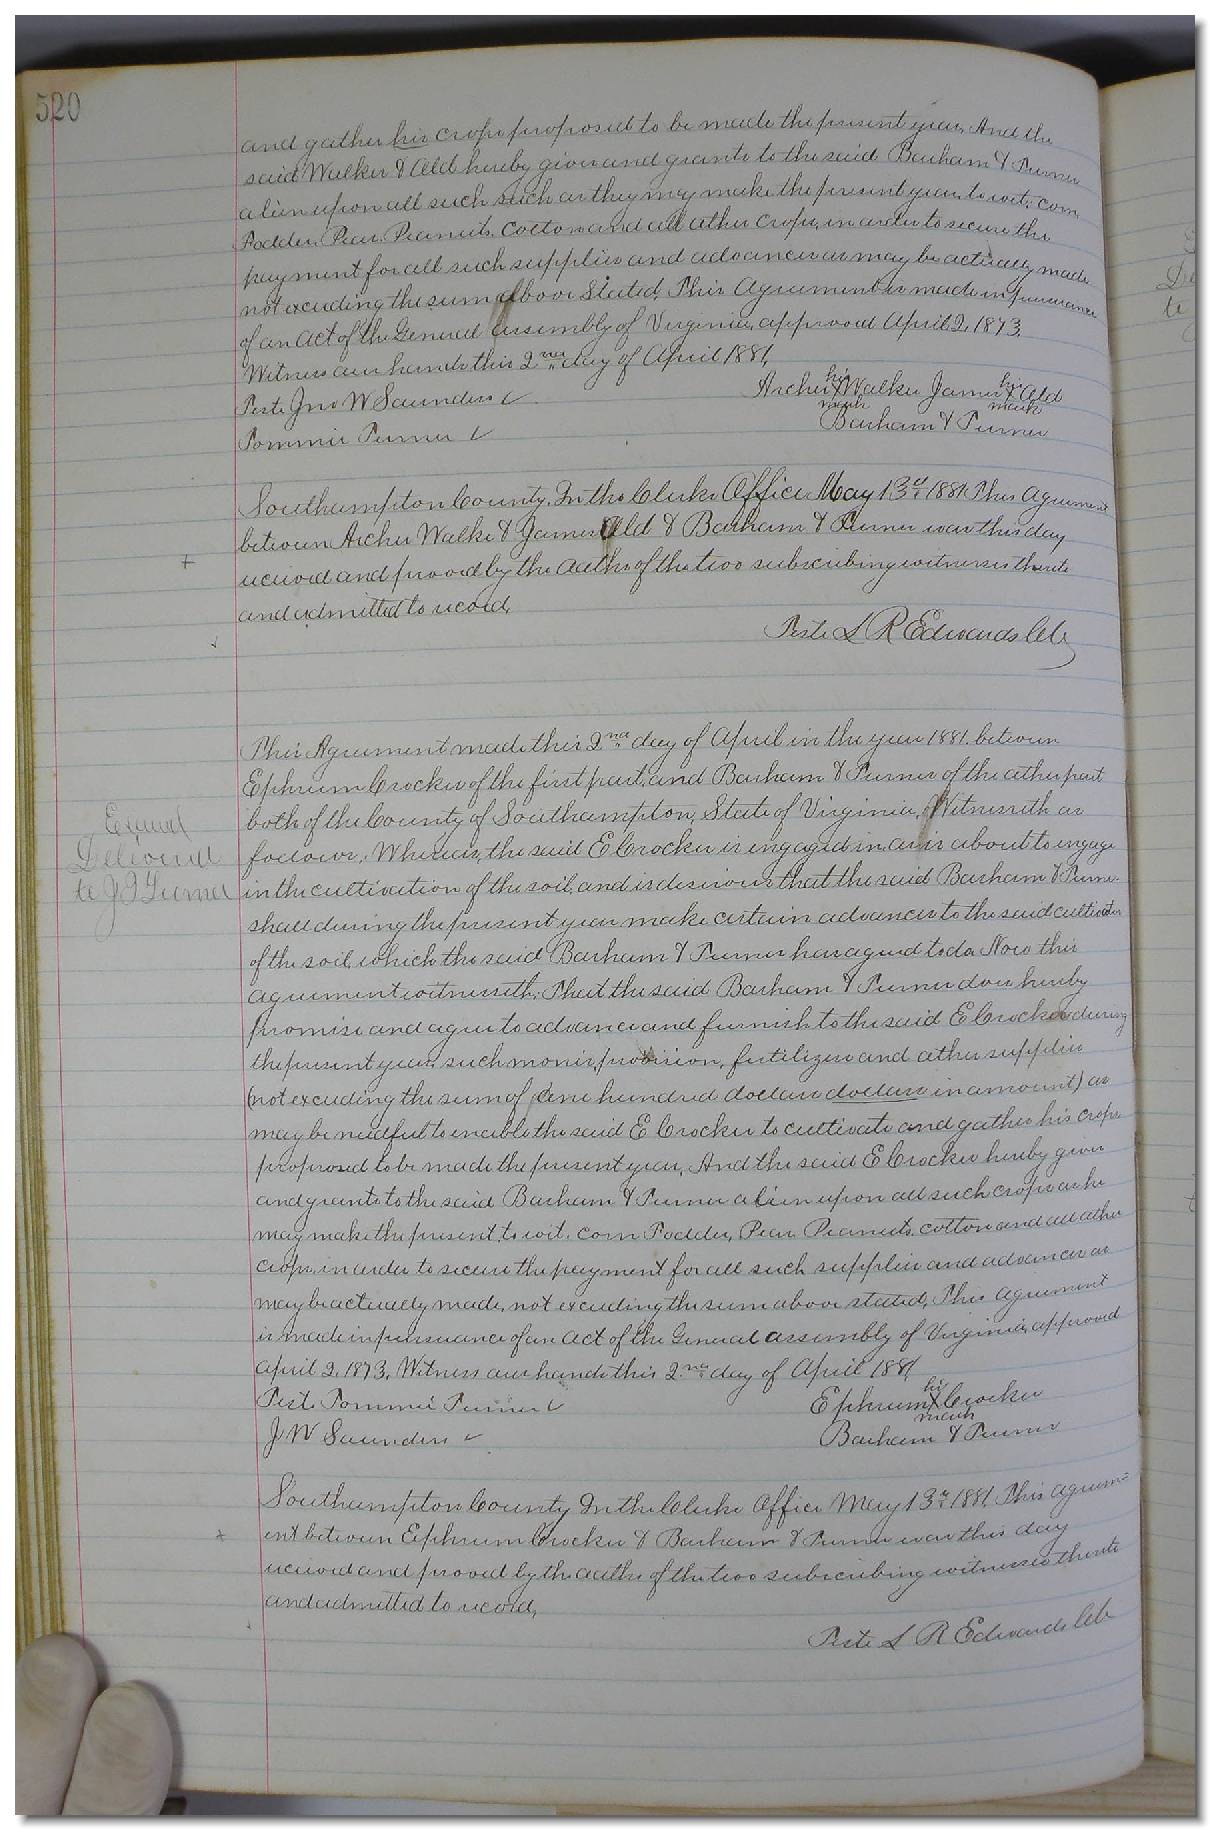 520
and gather his crops proposed to be made the present year, And the
said Walker & Ald hereby gives and grants to the said Barham & Turner
a lien upon all such such as they may make the present year, to wit; corn,
Fodder, Peas, Peanuts, cotton and all other crops, in order to secure the
payment for all such supplies and advances as may be actually made
not exceeding the sum above stated. This Agreement is made in pursuance
of an Act of the General assembly of Virginia, approved April 2, 1873.
Witness our hands this 2nd day of April 1881,
his his
Teste Jno W Saunders ✓ Archer X Walker James X Ald
mark mark
Tommie Turner ✓ Barham & Turner
Southampton County, In the Clerks Office May 13d 1881. This Agreement
between Archer Walke & James Ald & Barham & Turner was this day
+ received and proved by the oaths of the two subscribing witnesses thereto
and admitted to record,
Teste L R Edwards Clk
This Agreement made this 2nd day of April in the year 1881. between
Ephrium Crocker of the first part, and Barham & Turner of the other part
both of the County of Southampton, State of Virginia, Witnesseth as
follows; Whereas, the said E Crocker is engaged in, or is about to engage
in the cultivation of the soil, and is desirous that the said Barham & Turner
shall during the present year make certain advances to the said cultivator
of the soil, which the said Barham & Turner has agreed to do. Now this
agreement witnesseth; That the said Barham & Turner does hereby
promise and agree to advance and furnish to the said E Crocker during
the present year, such monies, provision, fertilizers and other supplies
(not exceeding the sum of One hundred dollars dollars in amount) as
may be needful to enable the said E Crocker to cultivate and gather his crops
proposed to be made the present year, And the said E Crocker hereby gives
and grants to the said Barham & Turner a lien upon all such crops as he
may make the present, to wit. corn Fodder, Peas Peanuts, cotton and all other
crops, in order to secure the payment for all such supplies and advances as
may be actually made, not exceeding the sum above stated, This Agreement
is made in pursuance of an Act of the General assembly of Virginia, approved
April 2, 1873, Witness our hands this 2nd day of April 1881,
Delivered
to J T Turner
his
Teste. Tommie Turner ✓ Ephrium X Crocker
mark
J W Saunders ✓ Barham & Turner
Southampton County In the Clerks Office May 13d 1881. This Agreem=
+ ent between Ephrium Crocker & Barham & Turner was this day
received and proved by the oaths of the two subscribing witnesses thereto
and admitted to record,
Teste L R Edwards Clk